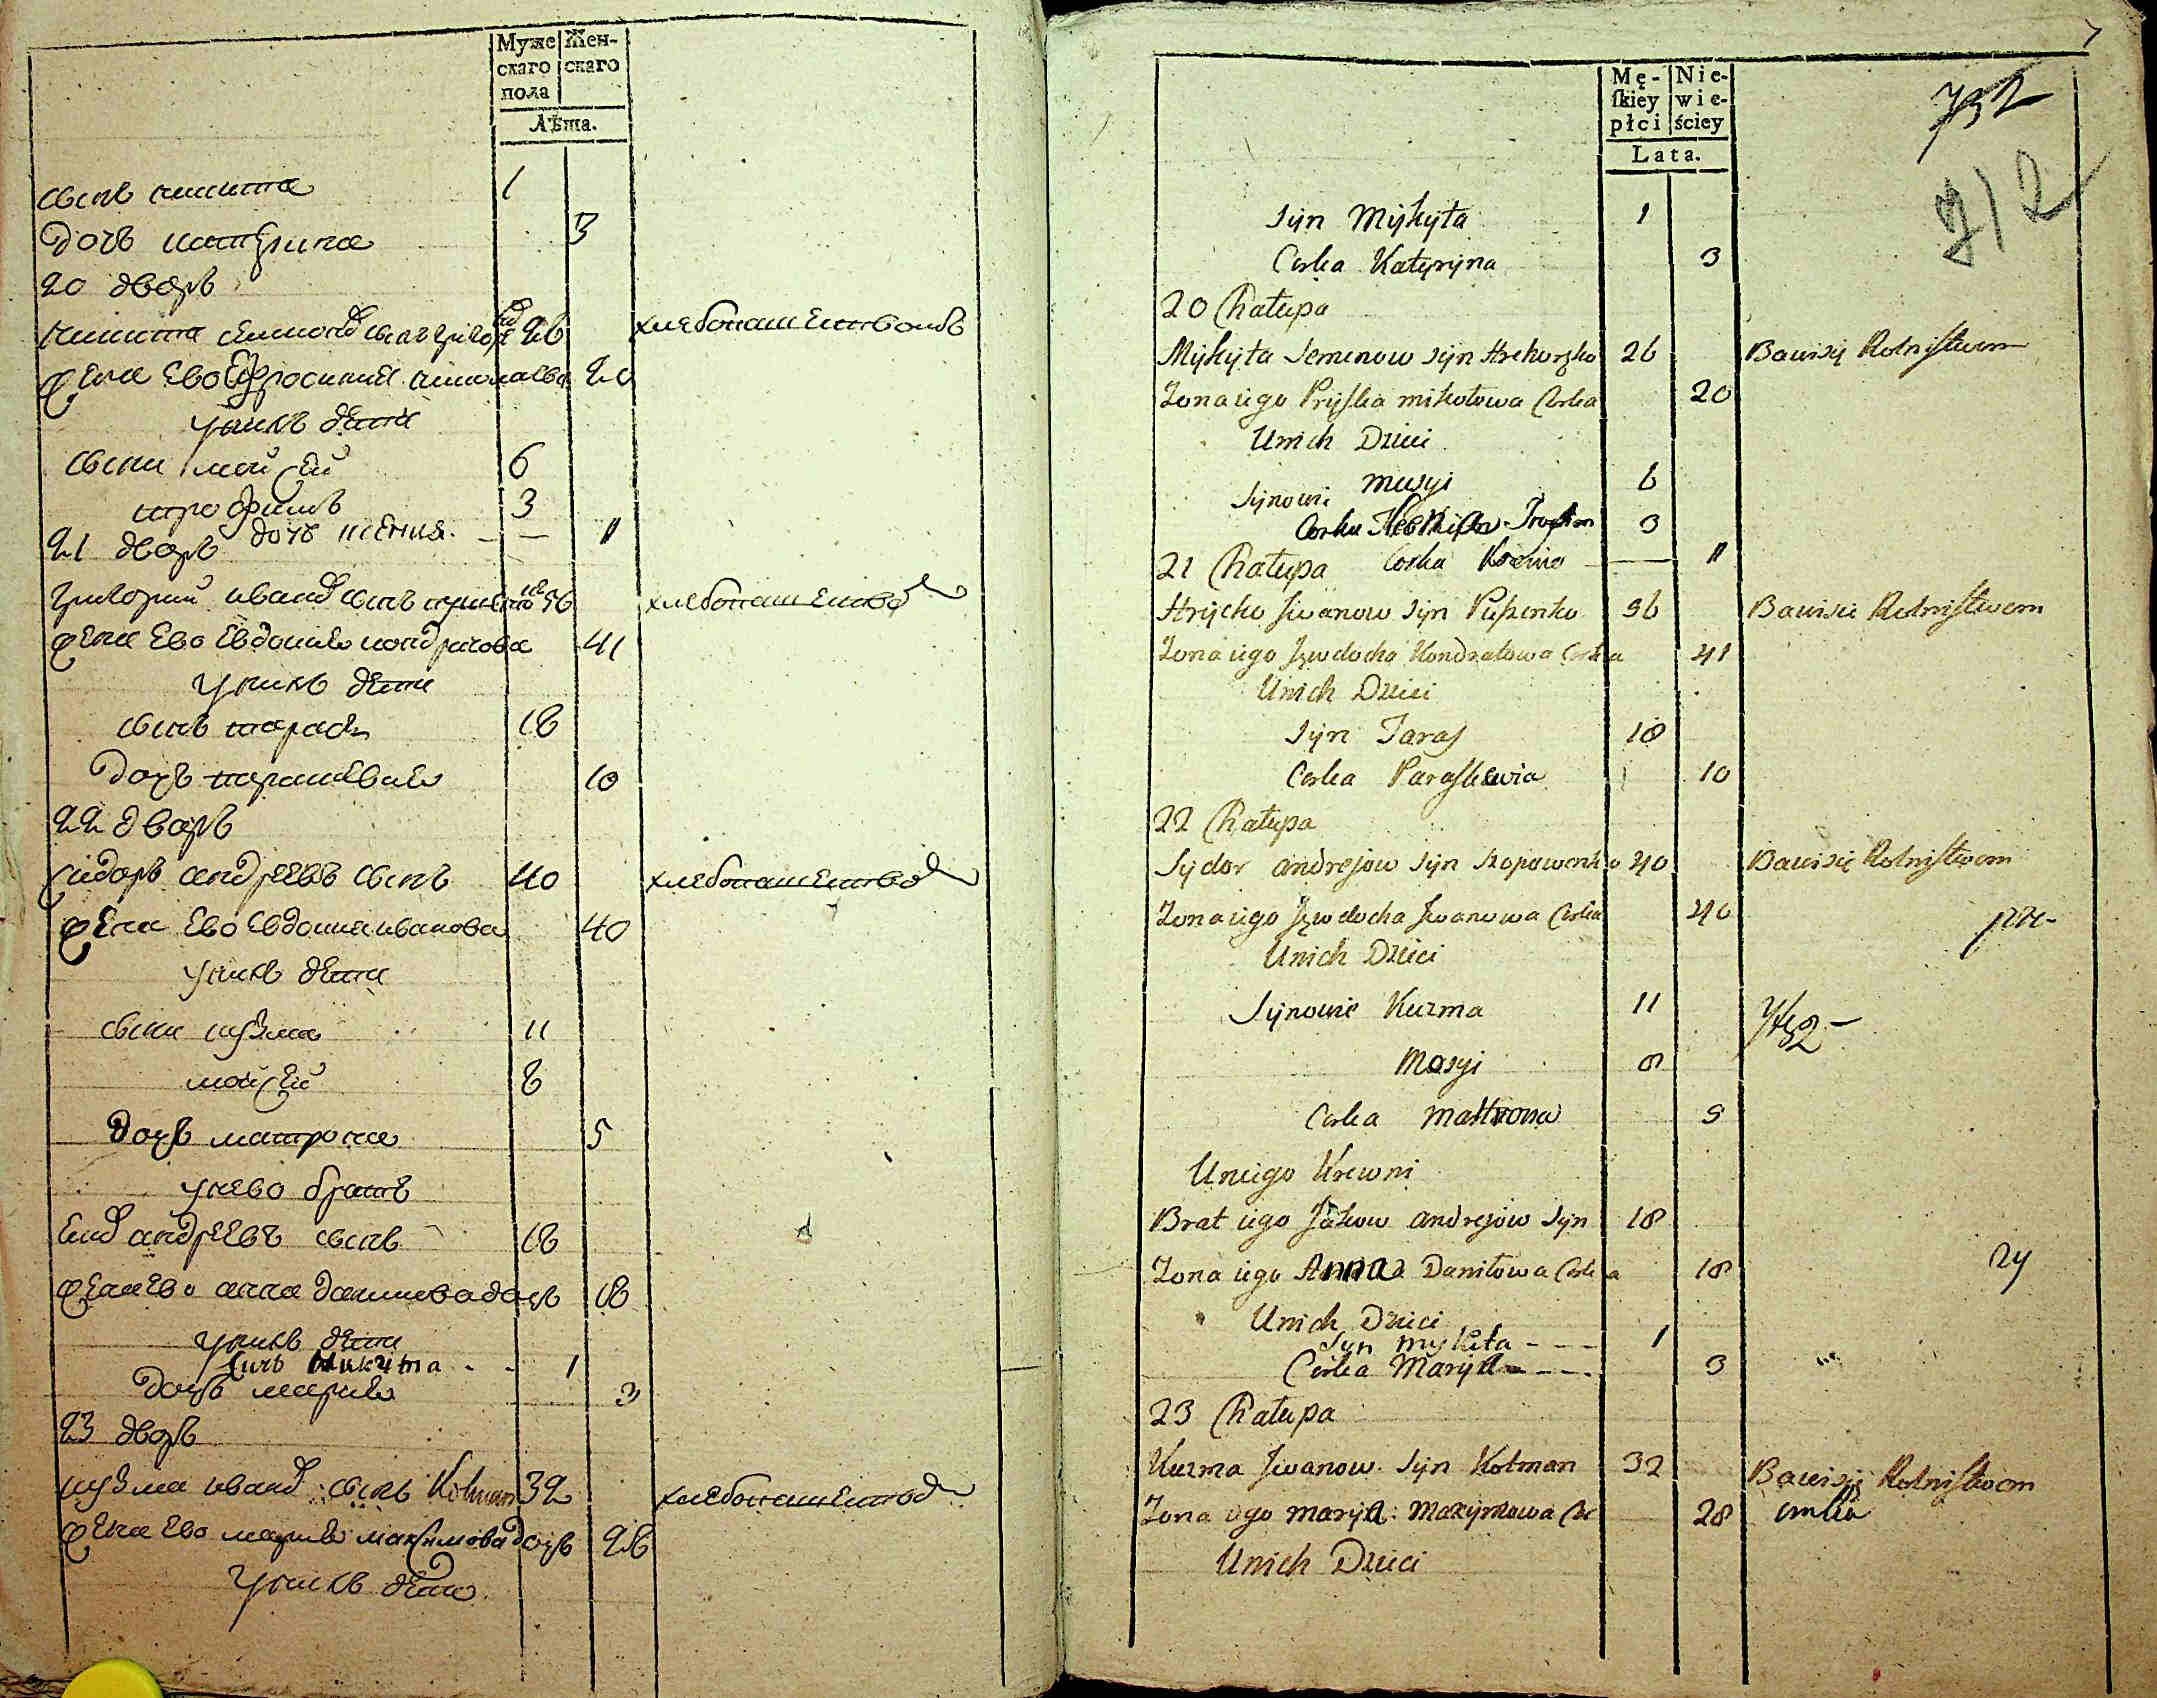 Муже
скаго
пола
Жен-
скаго
Лѣта.
сынъ никита 1
дочь катерина 3
20 дворъ
никита семіонов сынъ 26 хлебопашествомъ
жена ево Ефросиния 20
у них дети
сыни мойсей 6
трофимъ 3
21 дворъ дочь ксения. - - 1
григорий иванов сынъ 56 хлебопашество
жена ево Евдокия кондратова 41
у них дети
сынъ тарас 18
дочь параскевия 10
22 дворъ
сидоръ андреевъ сынъ 40 хлебопашество
жена ево Евдокия иванова 40
у них дети
сыни кузма 11
мойсей 8
дочь матрона 5
у нево братъ
андреевъ сынъ 18
жена ево анна данилова дочь 18
у них дети
синъ Никита - - 1
дочь мария 3
23 дворъ
кузма иванов сынъ Kolman 32 хлебопашество
жена ево мария максимова дочь 28
у них дети
Mę-
ſkiey
płci
Nie-
wie-
ściey
Lata.
7
732
712
Syn Mykyta 1
Corka Kateryna 3
20 Chałupa
Mykyta Semenow Syn 26 Bawi się Rolnistwem
Zona iego Pryska mikołowa Corka 20
Unich Dzieci
Synowie musyi 6
Corka Trofim 3
21 Chałupa Corka Ksenia 1
Hrycko Iwanow Syn 56 Bawi się Rolnistwem
Zona iego Jewdocha Kondratowa Corka 41
Unich Dzieci
Syn Taras 18
Corka Paraskewia 10
22 Chałupa
Sydor andrejow Syn Szopowenko 40 Bawi się Rolnistwem
Zona iego Jewdocha Iwanowa Corka 40
Unich Dzieci
Synowie Kuzma 11
Mosyi 8
Corka Mattrona 5
Uniego Krewni
Brat iego Jakow andrejow Syn 18
Zona iego Anna Daniłowa Corka 18
Unich Dzieci
Syn mykita - - - 1
Corka Maryia - - - 3
23 Chałupa
Kuzma Iwanow Syn Kolman 32 Bawi się Rolnistwem
Zona iego maryia Maxymowa 28
Unich Dzieci